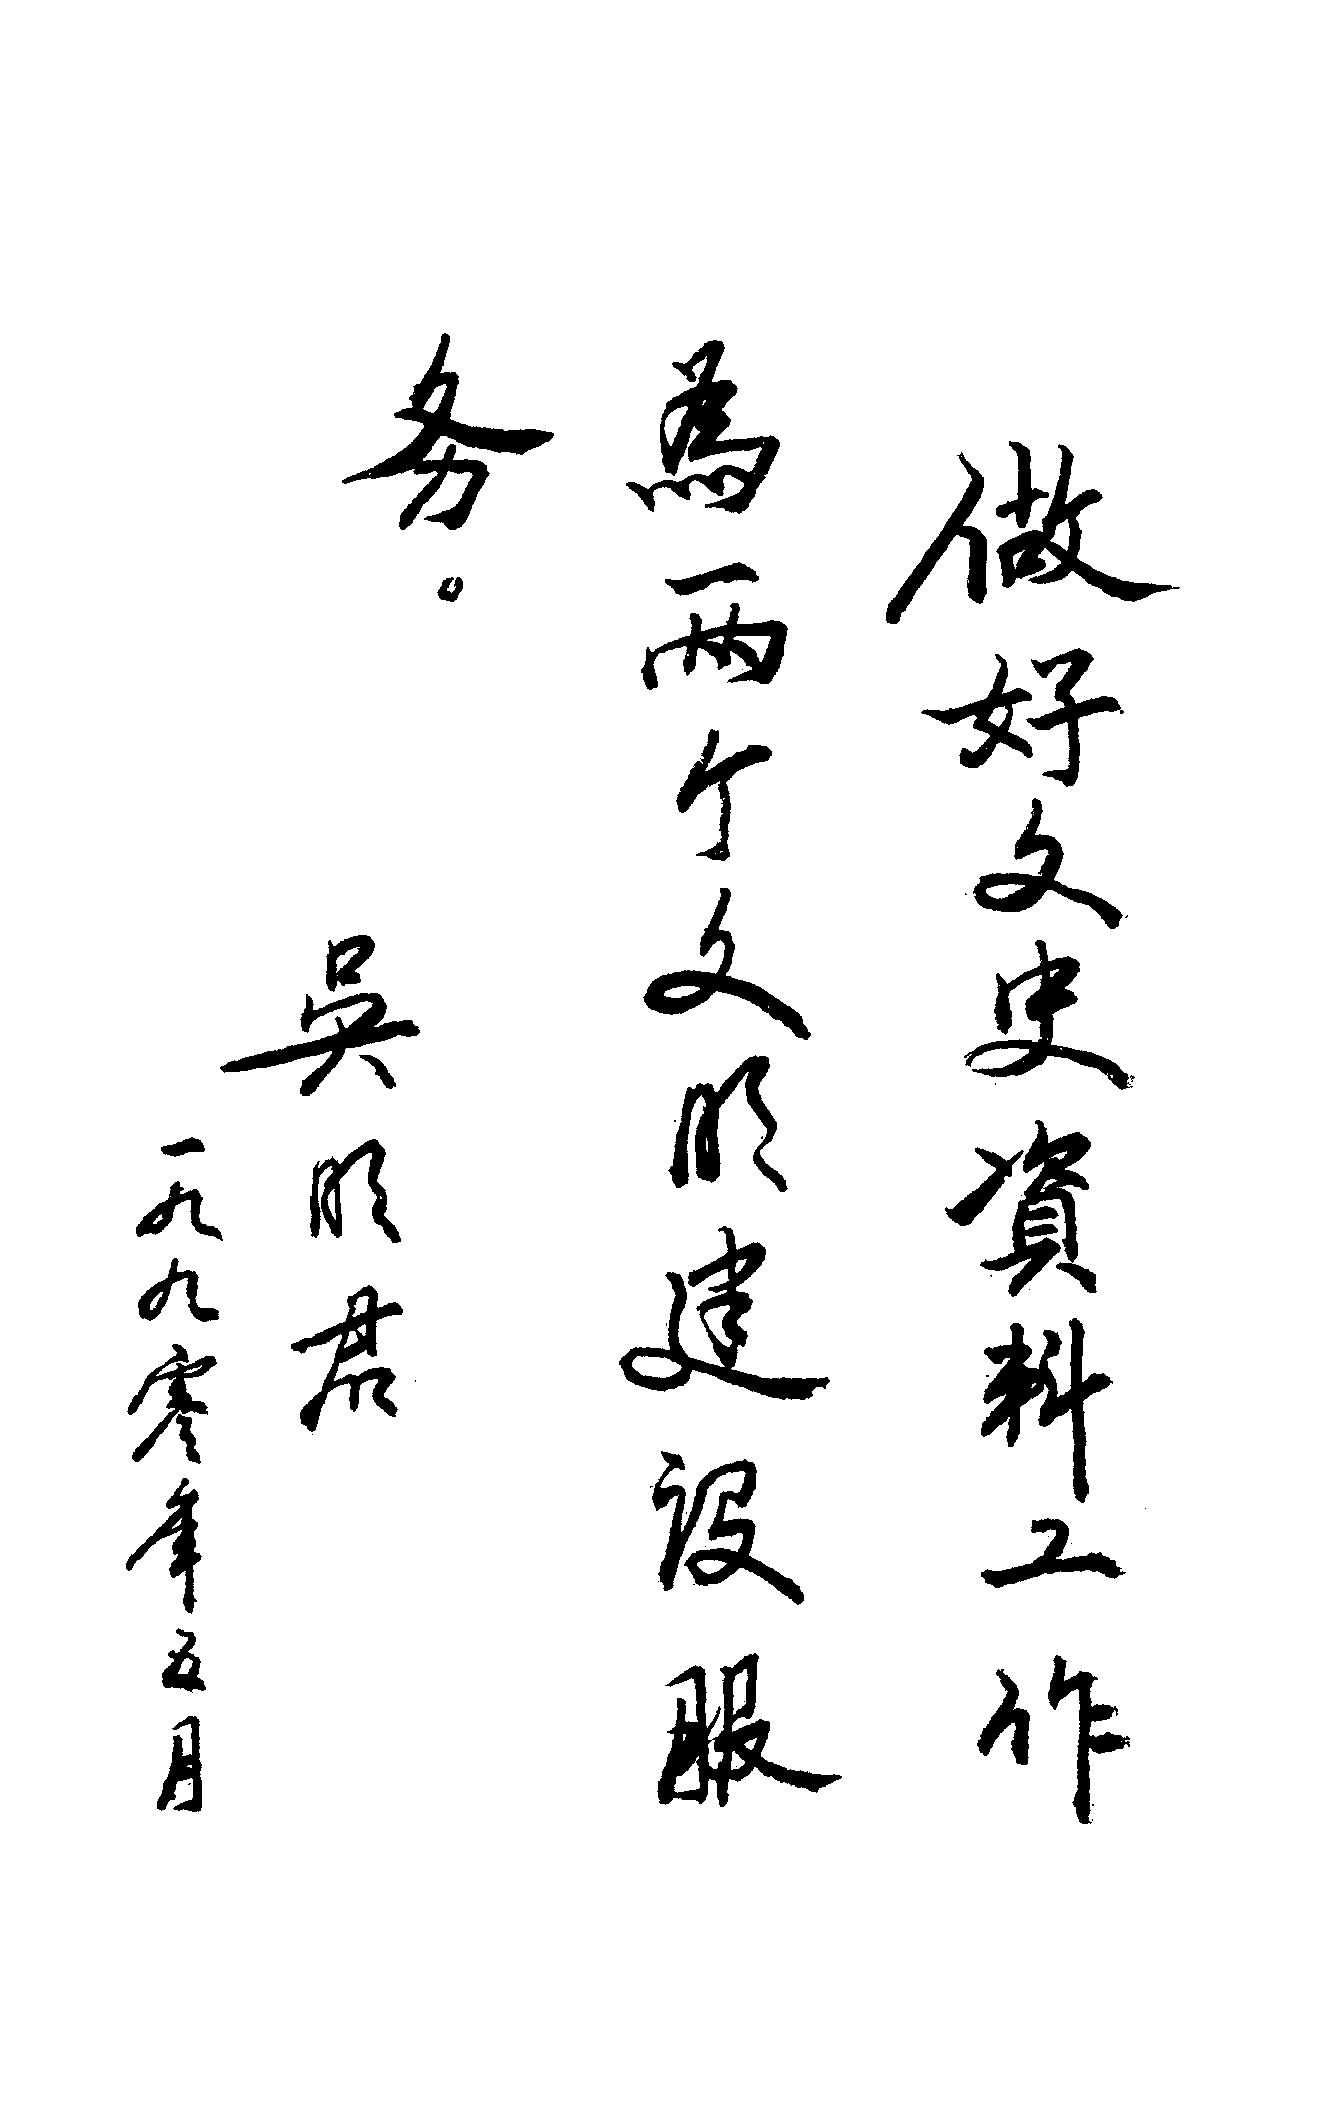 做好文史資料工作
為两个文明建設服
务。
吳明君
一九九零年五月